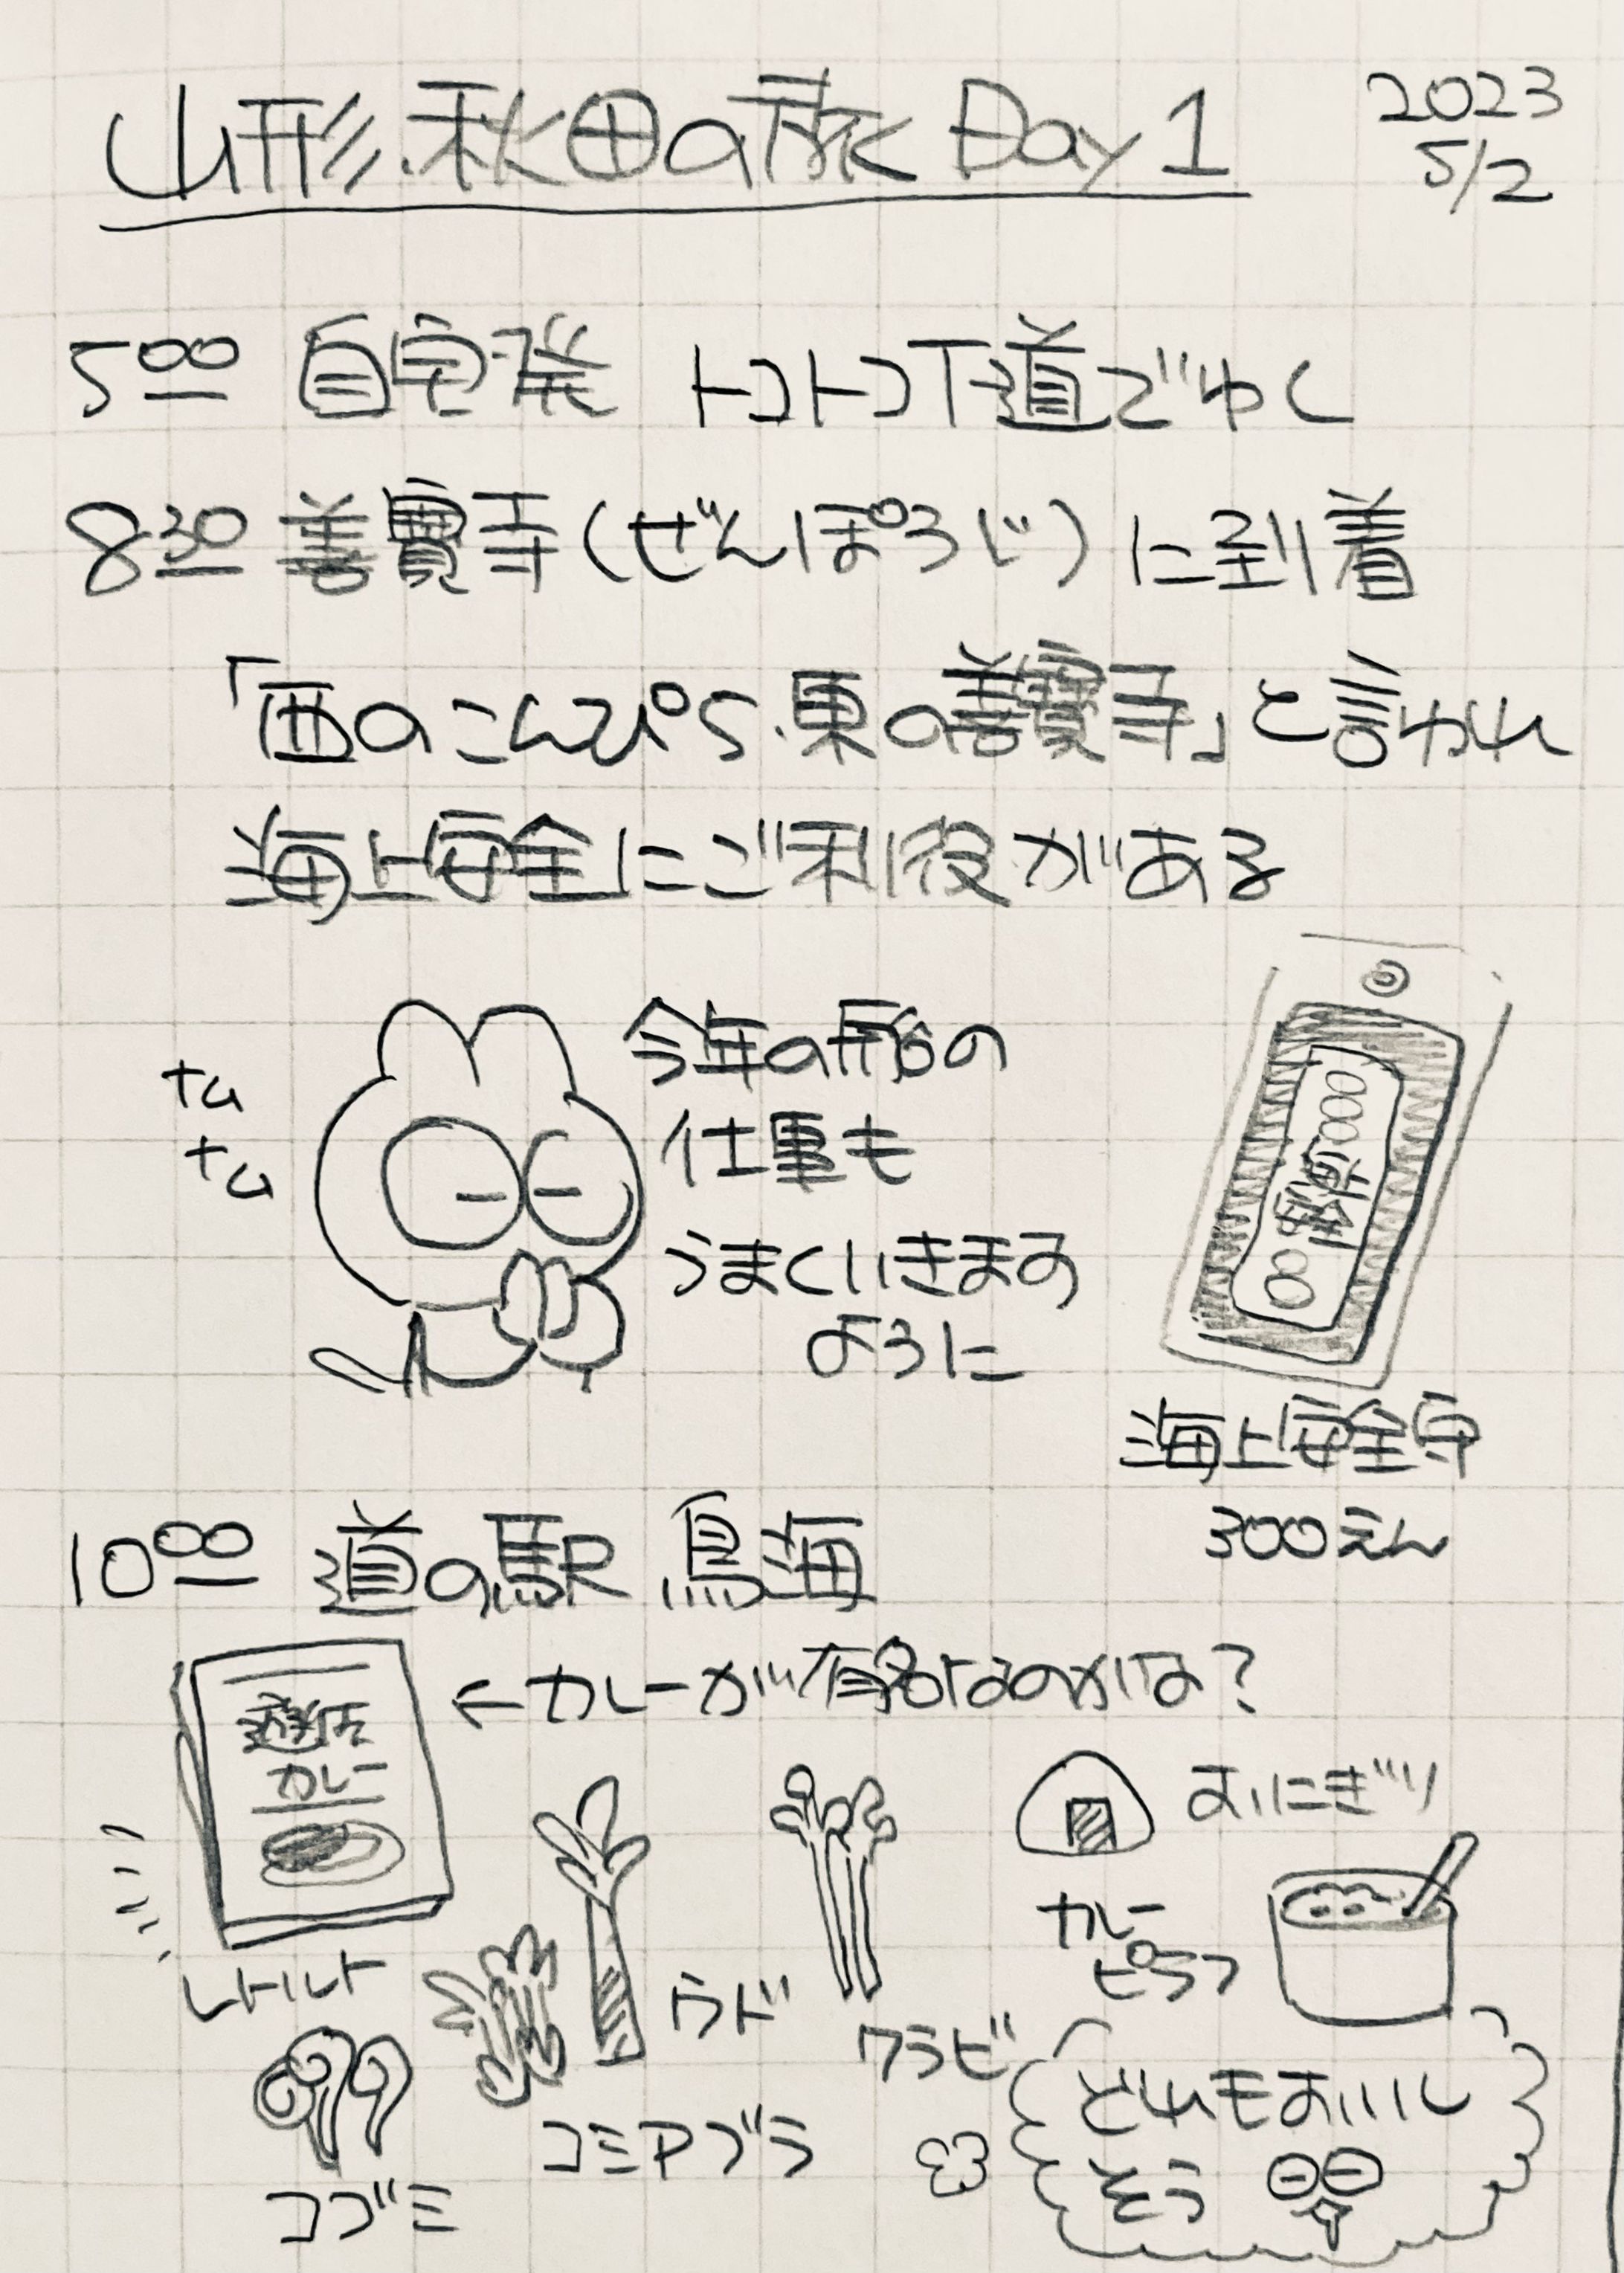 山形.秋田の旅 Day1
2023
5/2
5:00 自宅発 トコトコ下道でゆく
8:30 善寳寺(ぜんぽうじ)に到着
「西のこんぴら.東の善寳寺」と言われ
海上安全にご利役がある
ナム
ナム
今年の船の
仕事も
うまくいきます
ように
海上安全守
300えん
10:00 道の駅 鳥海
←カレーが有名なのかな?
遊佐
カレー
レトルト
ウド
ワラビ
おにぎり
カレー
ピラフ
コゴミ
コシアブラ
どれもおいし
そう